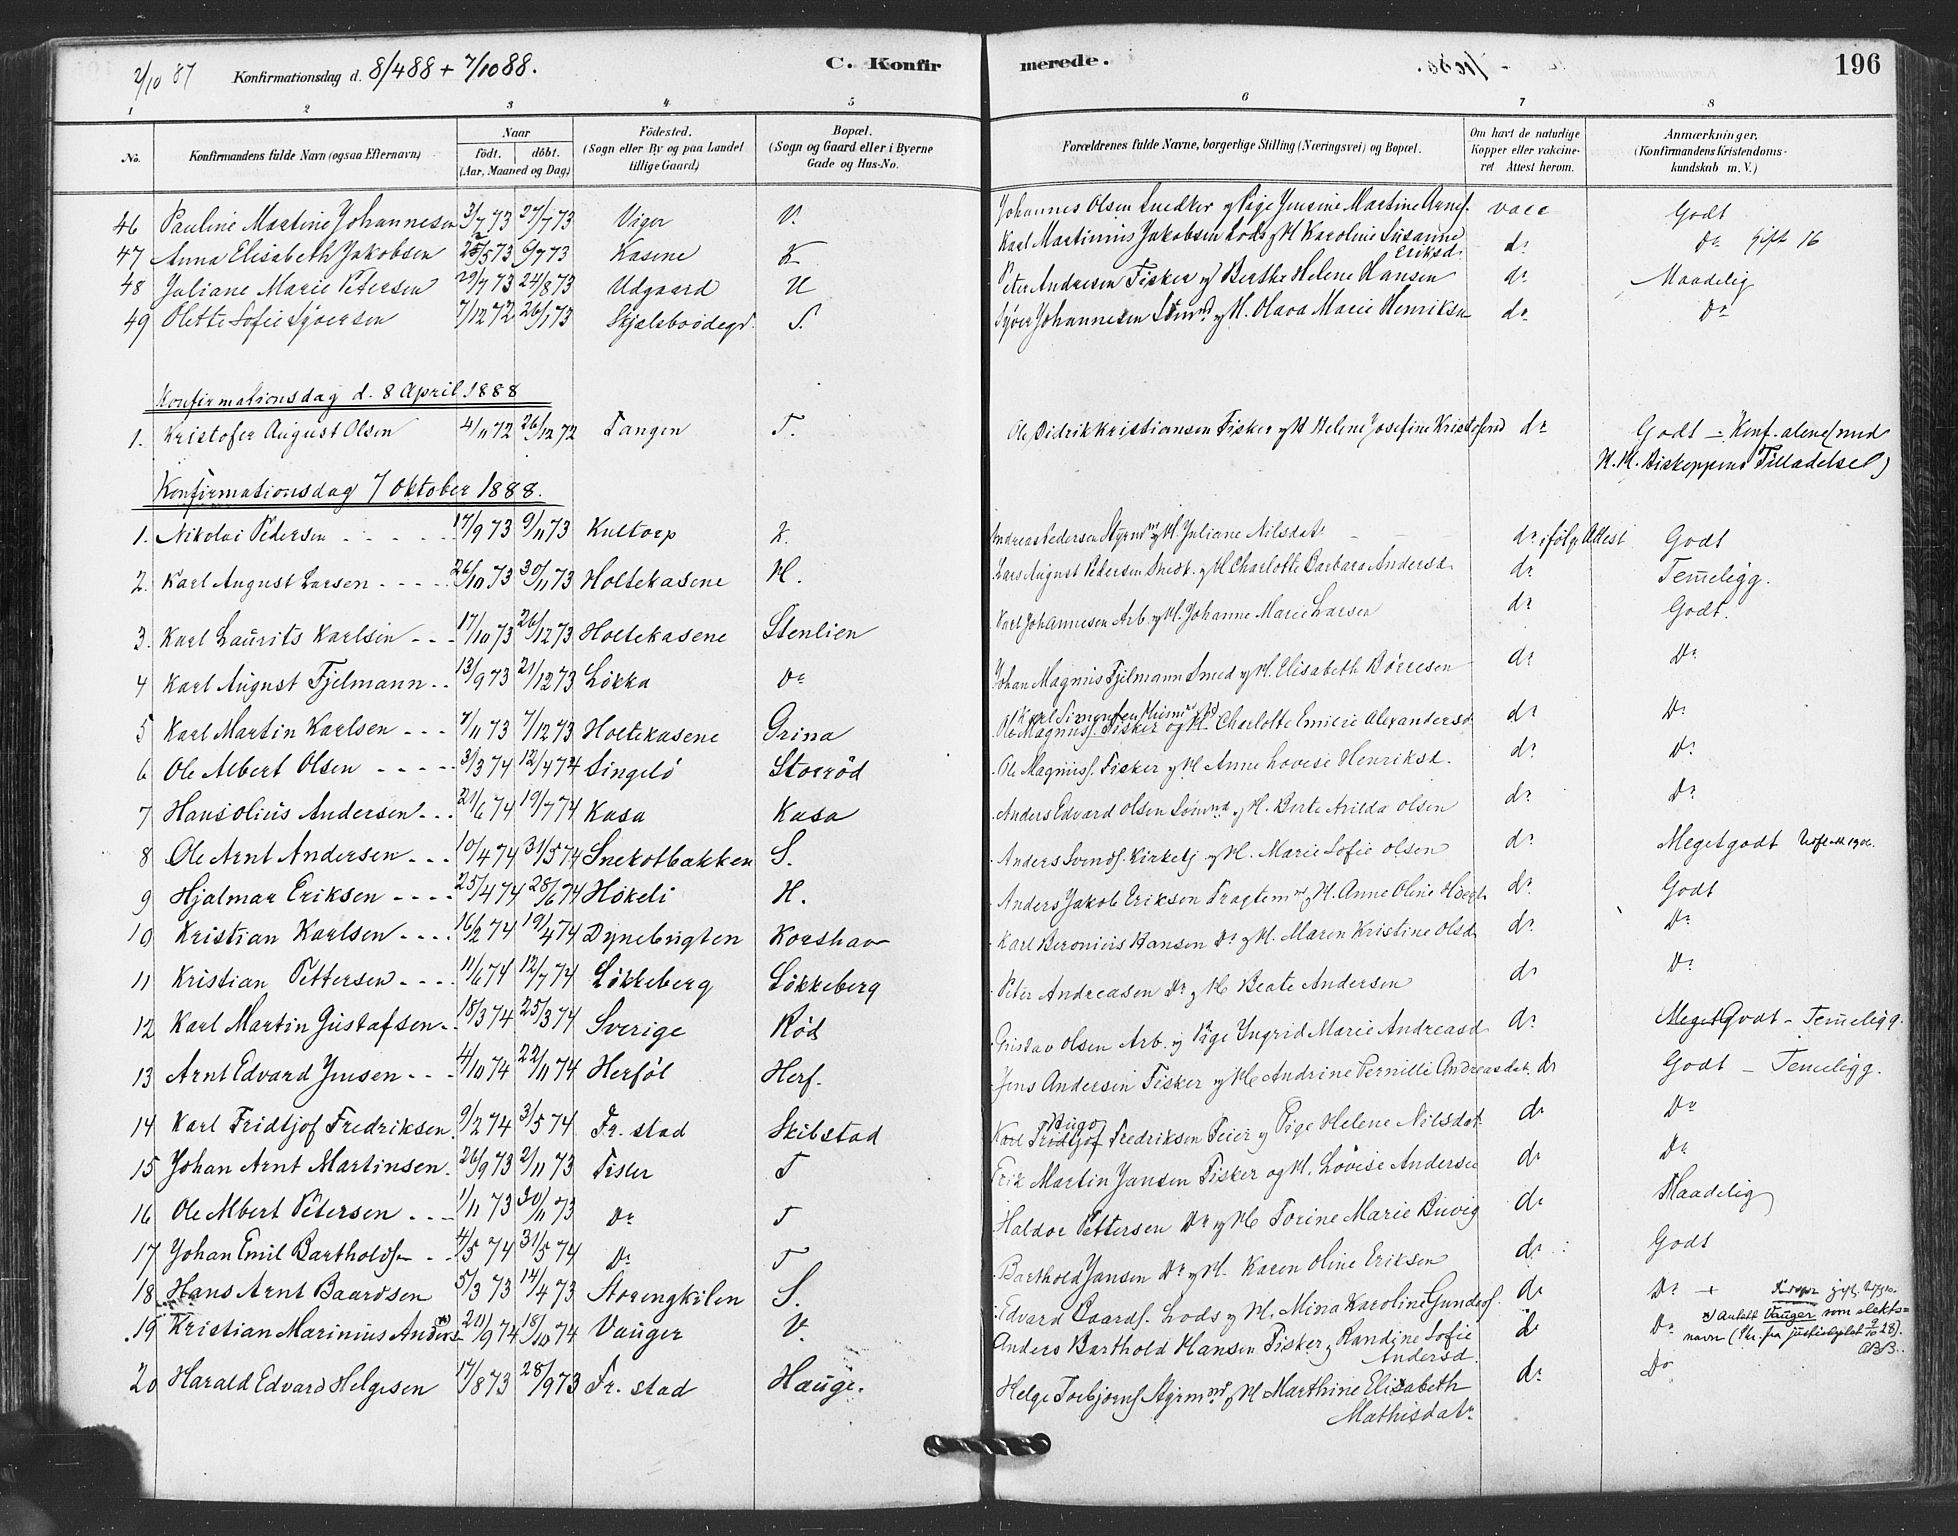 2/10 87 Konfirmationsdag d. 8/4 88 + 7/10 88. C. Konfirmerede. 196
1 2 3 4 5 6 7 8
No. Konfirmandens fulde Navn (ogsaa Efternavn) Naar födt. döbt. (Aar, Maaned og Dag) Födested. (Sogn eller By og paa Landet tillige Gaard) Bopæl. (Sogn og Gaard eller i Byerne Gade og Hus-No. Forældrenes fulde Navne, borgerlige Stilling (Næringsvei) og Bopæl. Om havt de naturlige Kopper eller vakcineret Attest herom. Anmærkninger. (Konfirmandens Kristendomskundskab m. V.)
46 Pauline Martine Johannesen 3/7 73 27/7 73 Viger V. Johannes Olsen Snedker og Pige Jensine Martine Arnes. vacc Godt
47 Anna Elisabeth Jakobsen /5 73 6/7 73 Kasene K Karl Martinius Jakobsen Lods og H Karoline Susanne Eriksd. do Do Gift 16
48 Juliane Marie Petersen 29/7 73 24/8 73 Udgaard U Peter Andresen Fisker og Berthe Helene Hansen do Maadelig
49 Olette Sofie Syversen 7/12 72 26/1 73 Skjelsboödegd. S. Syver Johannesen Sömnd og H. Olava Marie Henriksn do Do
Konfirmationsdag d. 8 April 1888
1. Kristofer August Olsen 4/11 72 26/12 72 Tangen T. Ole Didrik Kristiansen Fisker og H Helene Josefine Kristofersd do Godt - Konf. alene (med
H. H. Biskoppens Tilladelse)
Konfirmationsdag 7 Oktober 1888.
1. Nikolai Pedersen 17/9 73 9/11 73 Kultorp K. Andreas Pedersen Styrmd og H. Juliane Nilsdat. do ifölge Attest Godt
2. Karl August Larsen 26/10 73 30/11 73 Holtekasene H. Lars August Pedersen Smedt. og H Charlotte Barbara Andersd do Temelig g.
3. Karl Laurits Karlsen 17/10 73 26/12 73 Holtekasene Stenlien Karl Johannesen Arb. og H. Johanne Marie Larsen do Godt.
4 Karl August Fjelmann 13/9 73 21/12 73 Lökka Do Johan Magnus Fjelmann Smed og H. Elisabeth Börresen do Do
5 Karl Martin Karlsen 7/11 73 7/12 73 Holtekasene Grina Karl Simonsen
Ole Magnus. Fisker og H. Charlotte Emilie Alexandersd do Do
6 Ole Albert Olsen 3/3 74 12/4 74 Singelö Storröd Ole Magnus. Fisker og H Anne Lovise Henriksd. do Do
7 Hans Olius Andersen 21/6 74 19/7 74 Kasa Kasa Anders Edvard Olsen Sömnd og H. Berte Arilda Olsen do Do
8 Ole Arnt Andersen 10/4 74 31/5 74 Snekotbakken S. Anders Svends. Kirketj og H. Marie Sofie Olsen do Meget godt
9 Hjalmar Eriksen 25/4 74 28/6 74 Hökeli H. Anders Jakob Eriksen Fragtemd og H. Anne Oline do Godt
10 Kristian Karlsen 16/2 74 19/4 74 Dynebugten Korshav Karl Beronius Hansen Do og H. Maren Kristine Olsd do Do
11 Kristian Pettersen 11/6 74 12/7 74 Lökkeberg Lökkeberg Peter Andreasen Do og H Beate Andersen do Do
12 Karl Martin Gustafsen 18/3 74 25/3 74 Sverige Röd Gustav Olsen Arb. og Pige Yngrid Marie Andreasd do Meget Godt - Temelig g.
13 Arnt Edvard Jensen 4/10 74 22/11 74 Herföl Herf. Jens Andersen Fisker og H Andrine Pernille Andreasdat. do Godt - Temelig g.
14 Karl Fridtjof Fredriksen 9/2 74 3/5 74 Fr. stad Skibstad Hugo
Karl Fridtjof Fredriksen Feier og Pige Helene Nilsdat do Do
15 Johan Arnt Martinsen 26/9 73 2/11 73 Tisler T Erik Martin Jansen Fisker og H. Lovise Andersen do Do
16 Ole Albert Petersen 1/11 73 30/11 73 Do T Haldor Pettersen Do og H Torine Marie Buvig do Maadelig
17 Johan Emil Bartholds. 4/5 74 31/5 74 Do T Barthold Jansen Do og H. Karen Oline Eriksen do Godt
18 Hans Arnt Baardsen 5/3 73 14/4 73 Storengkilen S. Edvard Baards. Lods og H. Mina Karoline Gunders. do Do +
19 Kristian Marinius Anders x) 21/9 74 18/10 74 Vauger V. Anders Barthold Hansen Fisker og Randine Sofie Andersd. do Do x) antatt Vauger som slektsnavn (Skr. fra justisdeptet 9/10 28).
20 Harald Edvard Helgesen 17/8 73 28/9 73 Fr. stad Hauge. Helge Torbjorns. Styrmnd og H Marthine Elisabeth Mathisdatr do Do